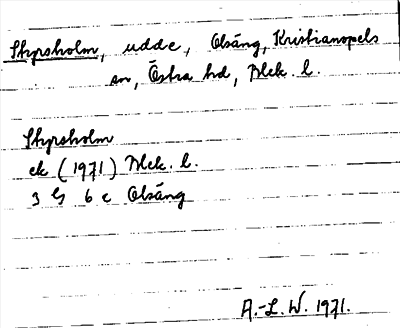 Styrsholm, udde, Olsäng, Kristianopels
sn, Östra hd, Blek. l.
Styrsholm
ek (1971) Blek. l.
3 G 6 c Olsäng
A.-L. W. 1971.